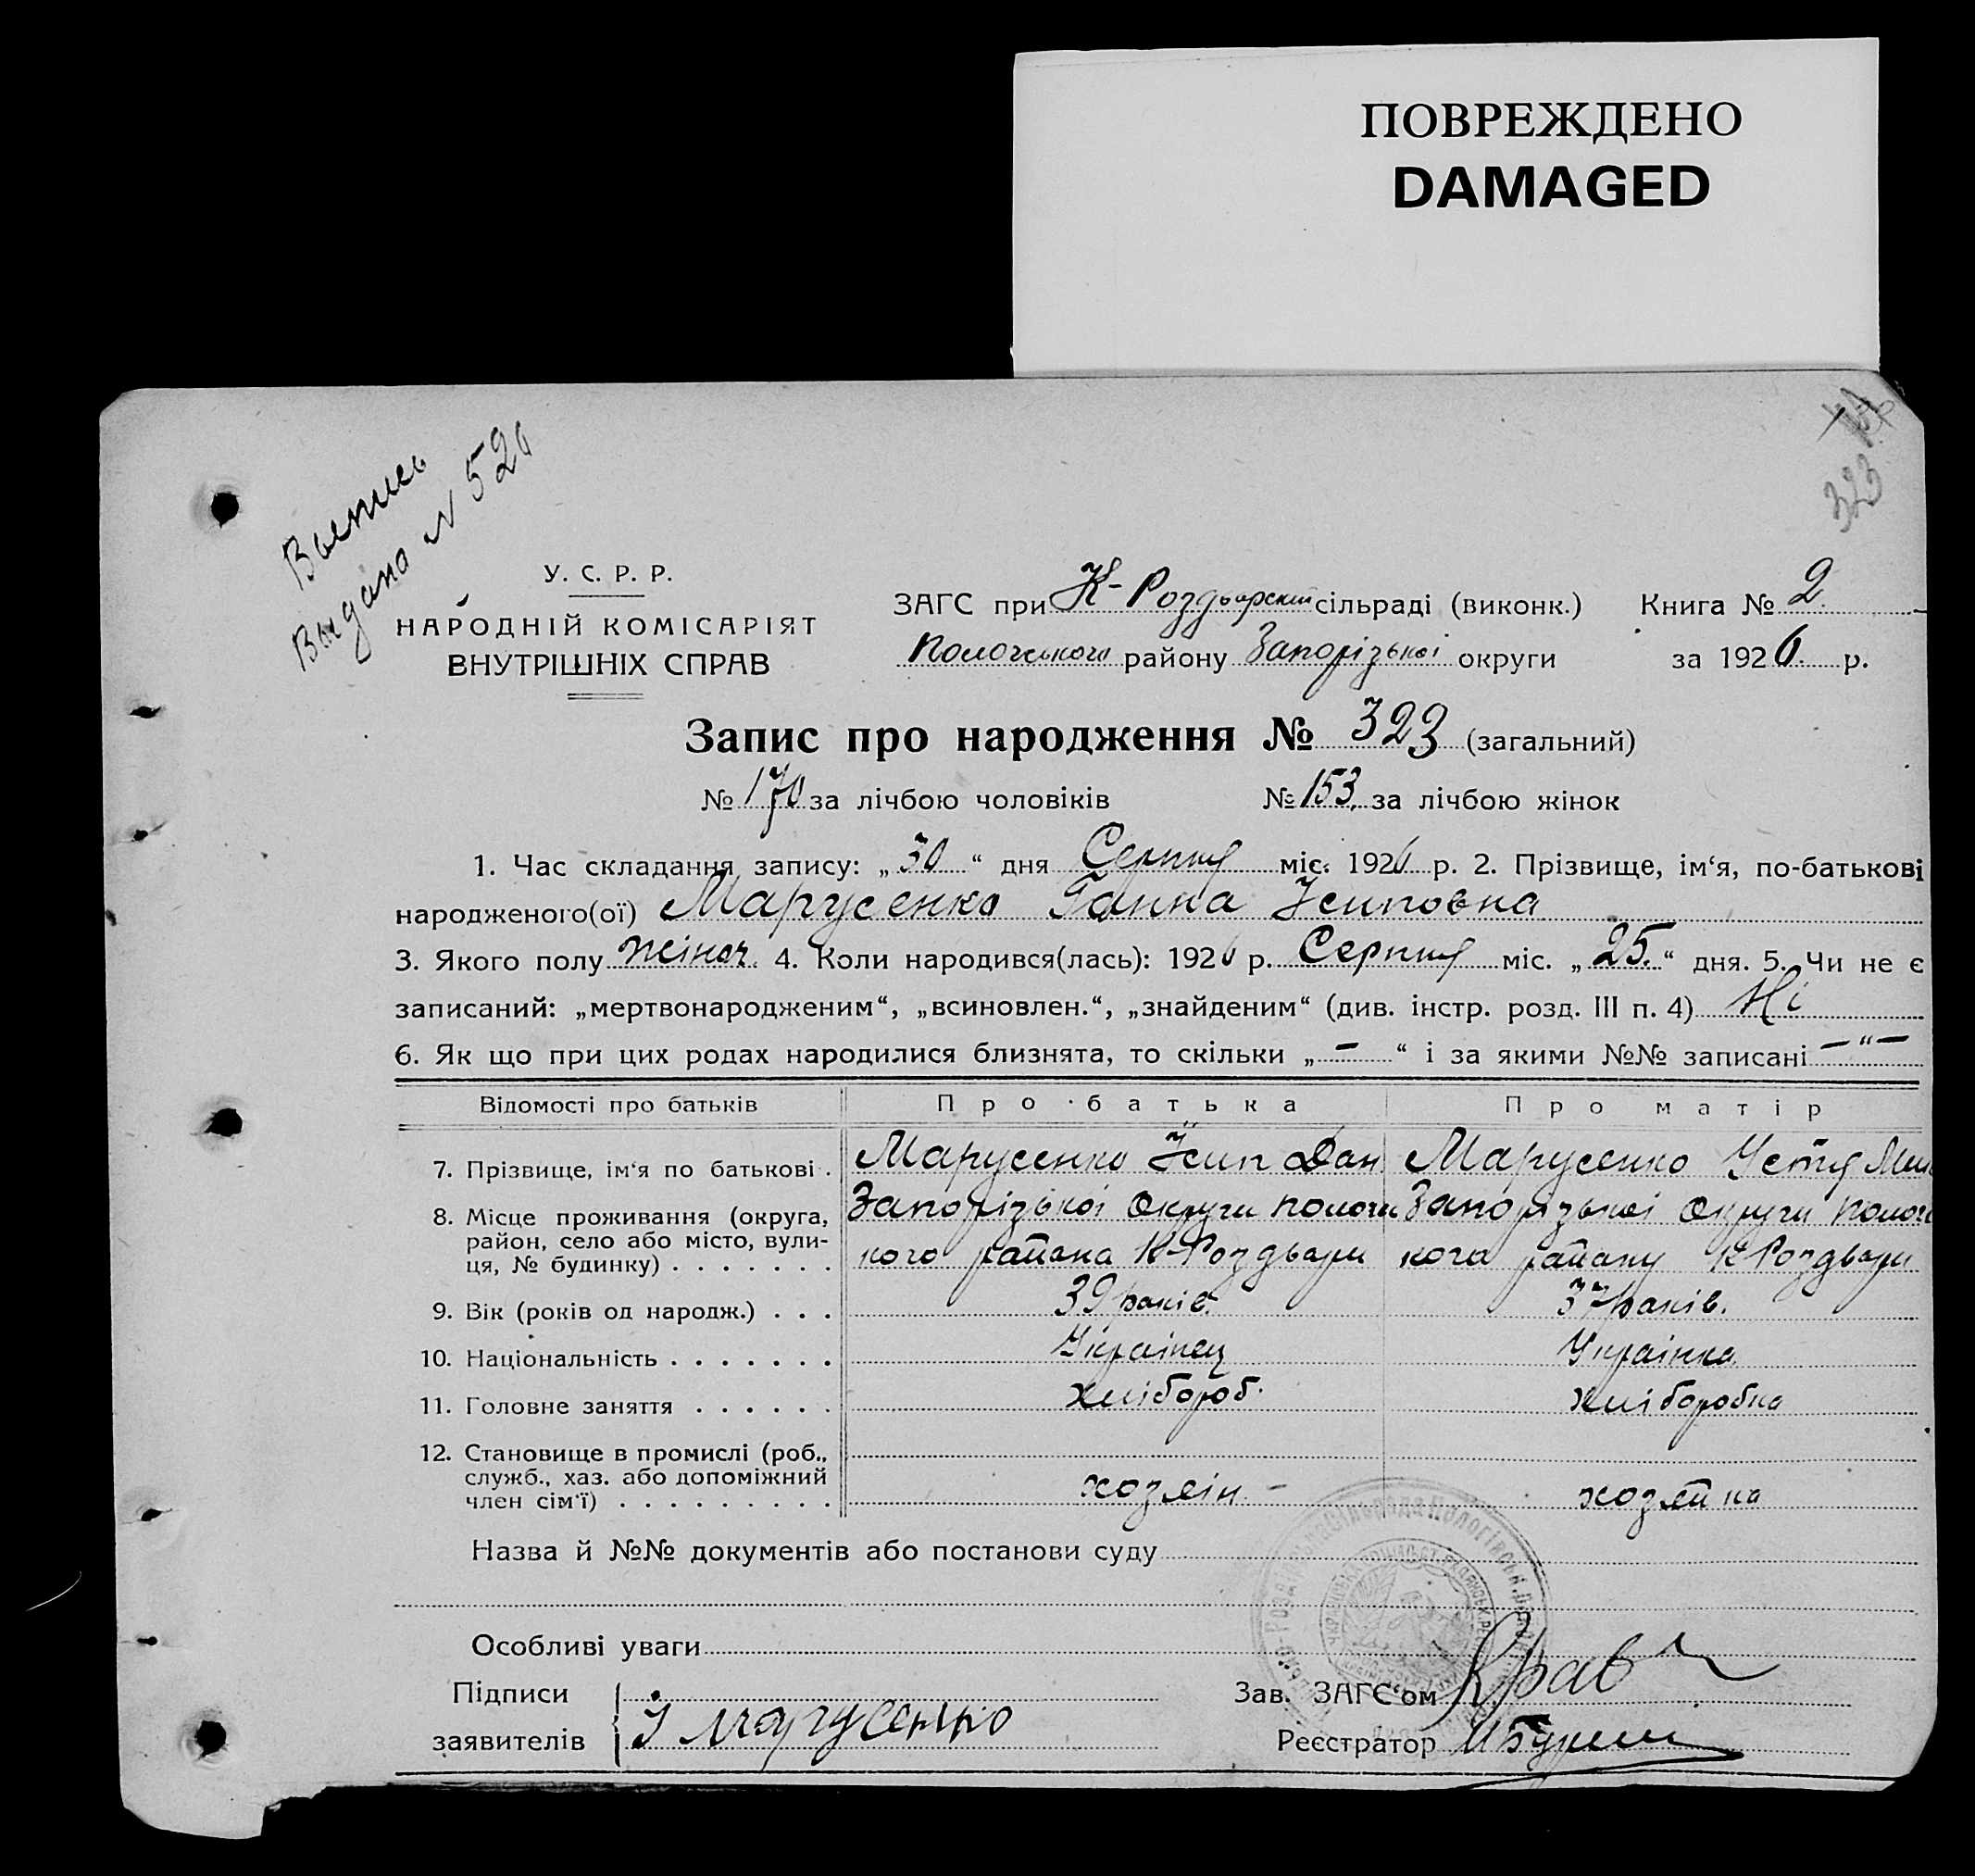 ПОВРЕЖДЕНО
DAMAGED
323
Выпись
выдана № 520
У. С. Р. Р.
НАРОДНІЙ КОМІСАРІЯТ
ВНУТРІШНІХ СПРАВ
ЗАГС при К-Роздорский сільраді (виконк.) Книга № 2
Пологського району Запорізької округи за 1926 р.
Запис про народження № 323 (загальний)
№ 170 за лічбою чоловіків № 153 за лічбою жінок
1. Час складання запису: „30“ дня Серпня міс. 1926 р. 2. Прізвище, ім‘я, по-батькові
народженого(ої) Марусенко Ганна Йсиповна
3. Якого полу жіноч. 4. Коли народився(лась): 1926 р. Серпня міс. „25.“ дня. 5. Чи не є
записаний: „мертвонародженим“, „всиновлен.“, „знайденим“ (див. інстр. розд. III п. 4) Ні
6. Як що при цих родах народилися близнята, то скільки „–“ і за якими №№ записані –"–
Відомості про батьків Про батька Про матір
7. Прізвище, ім‘я по батькові . Марусенко Йсип Дан Марусенко Устя
8. Місце проживання (округа, Запорізької Округи Запорізької Округи
район, село або місто, вули- кого района К-Роздоры кого району К-Роздоры
ця, № будинку) . . . . . . .
9. Вік (років од народж.) . . . 39 років. 37 років.
10. Національність . . . . . . . Українец Українка
11. Головне заняття . . . . . . хлібороб. хліборобка
12. Становище в промислі (роб.,
служб., хаз. або допоміжний хозяін – хозяйка
член сім‘ї) . . . . . . . . .
Назва й №№ документів або постанови суду
Особливі уваги
Підписи Зав. ЗАГС‘ом Крав
заявителів І Марусенко Реєстратор